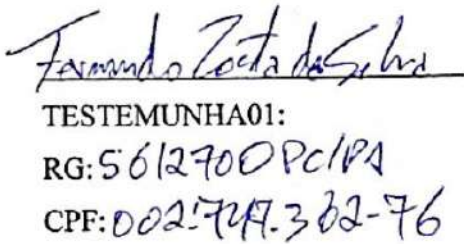 Fernando Costa da Silva
TESTEMUNHA01:
RG: 5612700 PC/PA
CPF: 002.747.362-76